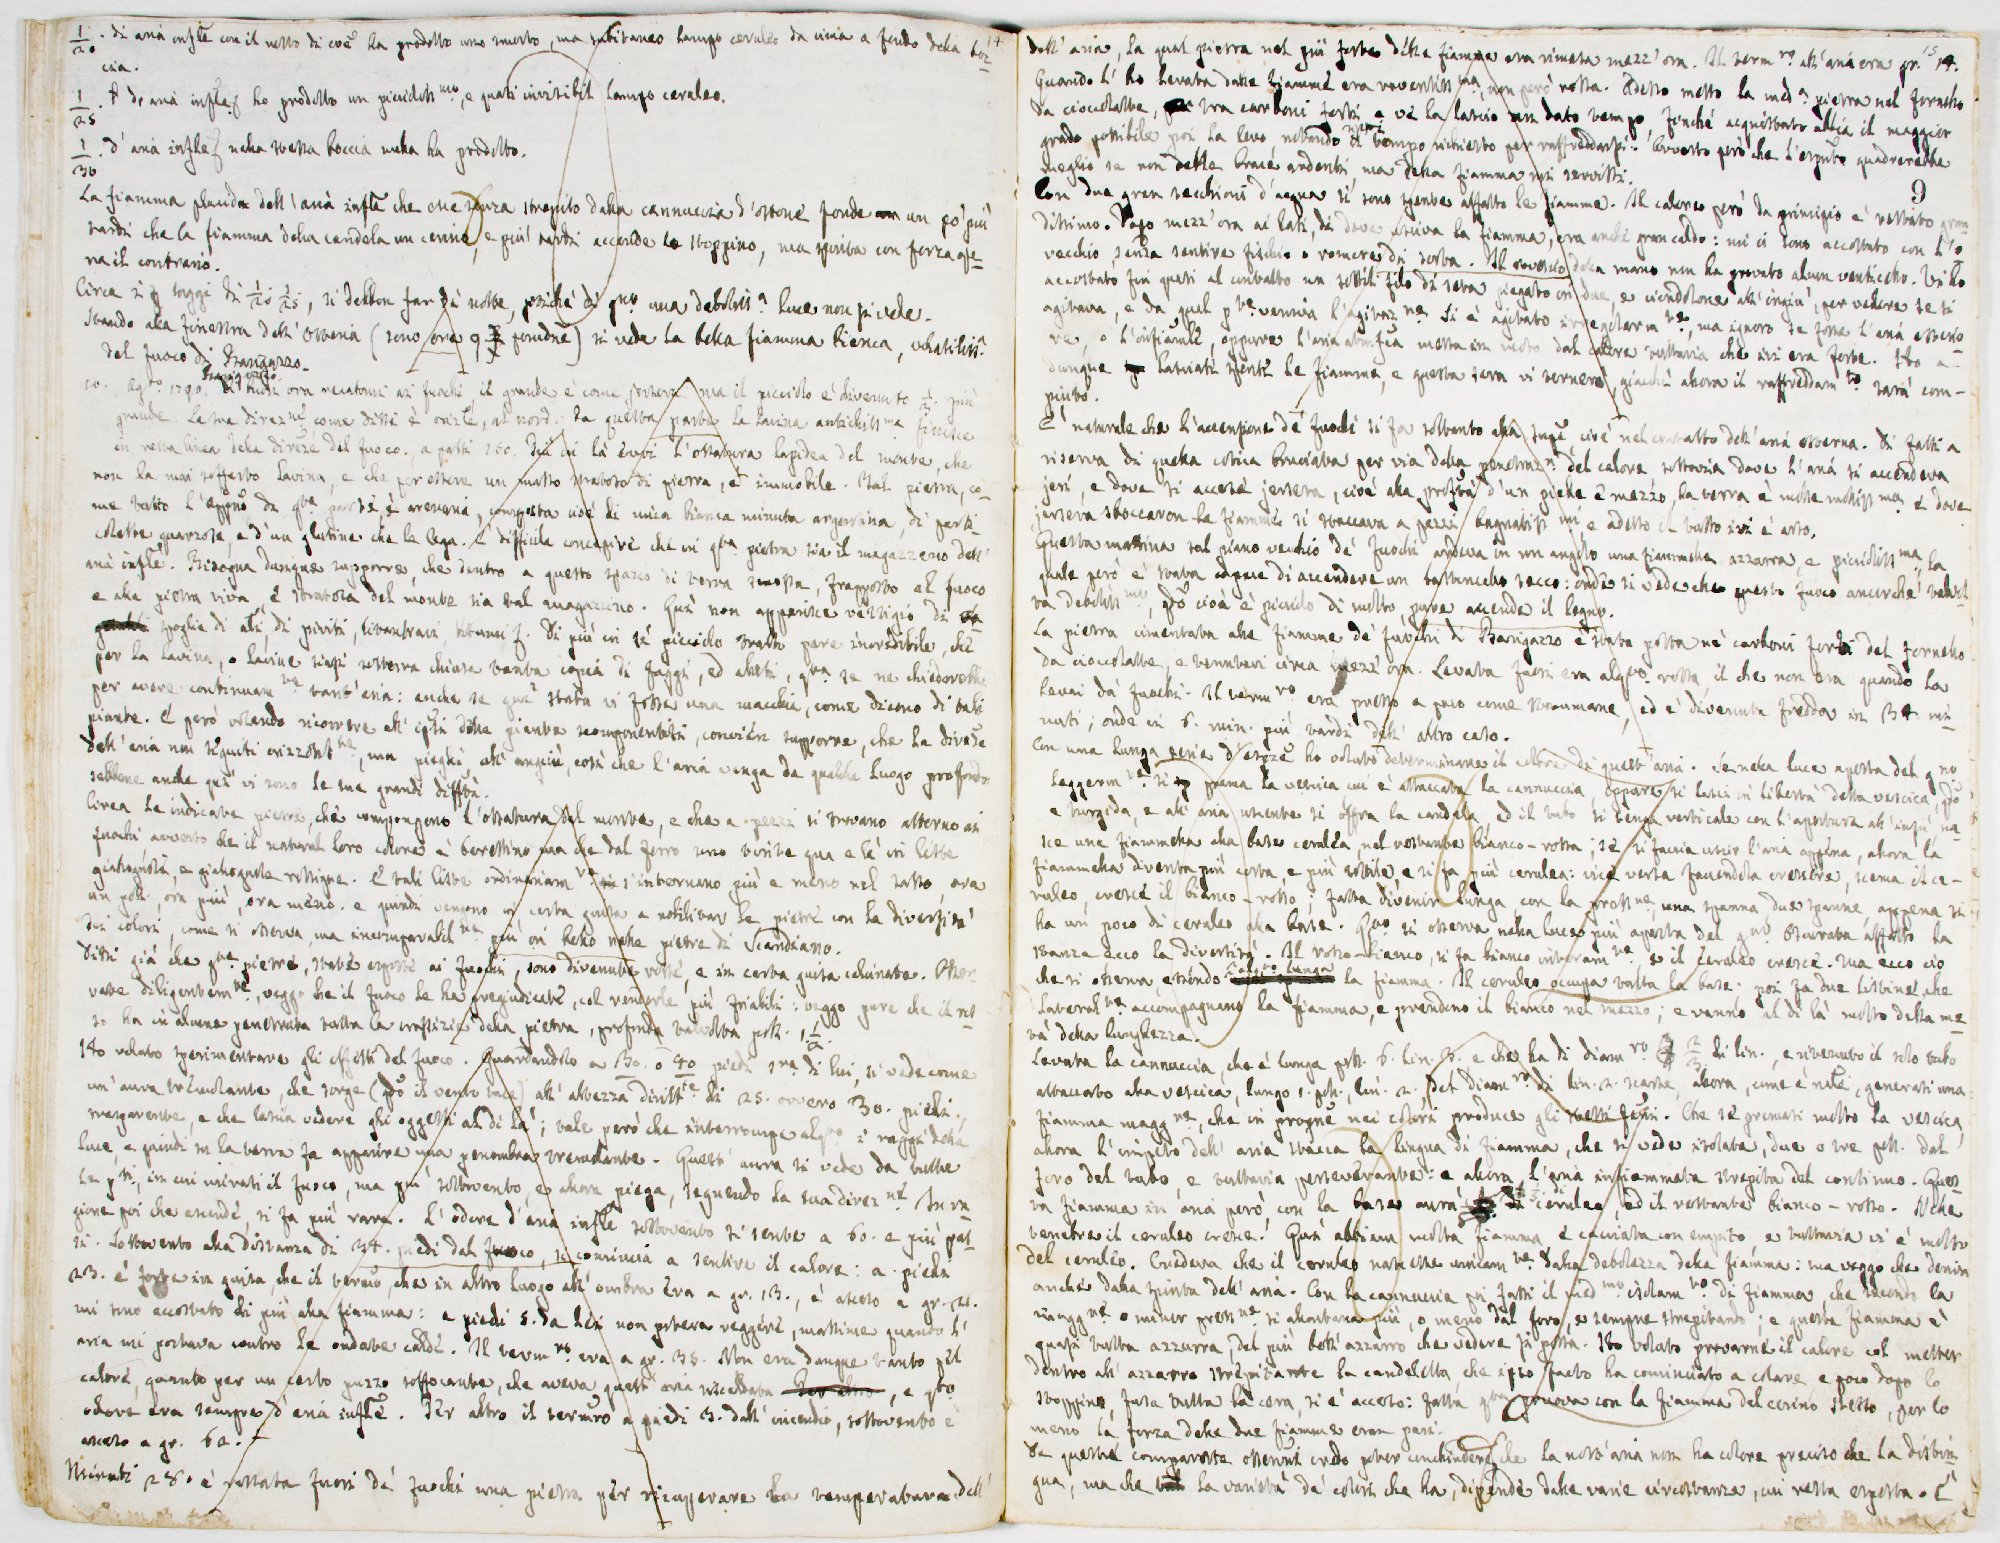 14
1/20. di aria infle con il resto di coe ha prodotto uno smorto, ma subitaneo lampo ceruleo da cima a fondo della boc-
cia.
1/25. di aria infle ho prodotto un piccioliss.mo, e quasi invisibil lampo ceruleo.
1/30. d'aria infle nella stessa boccia nulla ha prodotto.
La fiamma placida dell'aria infle che esce senza strepito dalla cannuccia d'ottone fonde un po' più
tardi che la fiamma della candela un cerino, e più tardi accende lo stoppino, ma spinta con forza ope-
ra il contrario.
Circa i saggi di 1/20 1/25, si debbon far di notte, poiché di gno una deboliss.a luce non si vede.
Stando alla finestra dell'Osteria (sono ore 9 pomdne) si vede la bella fiamma bianca, volatiliss.a
del fuoco di Barigazzo.
10. Agto 1790. Barigazzo. Di fuori ora recatomi ai fuochi, il grande è come jersera, ma il picciolo è divenuto 1/3 più
grande. La sua direzne come dissi è orizle, al nord. Da questa parte la lavina antichissma finisce
in retta linea della direzne del fuoco, a passi 160. Più in là evvi l'ossatura lapidea del monte, che
non ha mai sofferto lavina, e che per essere un masso stratoso di pietra, è immobile. Tal pietra, co-
me tutto l'Appno da qta parte, è arenaria, composta cioè di mica bianca minuta argentina, di parti-
celle quarzose, e d'un glutine che le lega. È difficile concepire che in qta pietra sia il magazzeno dell'
aria infle. Bisogna dunque supporre, che dentro a questo spazio di terra smossa, frapposto al fuoco
e alla pietra viva, e stratosa del monte sia tal magazzino. Qui non apparisce vestigio di
spoglie di piriti, bitumi. Di più in sì picciolo tratto pare incredibile, che
per la lavina, o lavine siasi sotterra chiusa tanta copia di faggi, ed abeti, qta se ne chiederebbe
per avere continuamte tant'aria: anche se qui stata vi fosse una macchia, come dicono di tali
piante. E però volendo ricorrere all'ipsi delle piante scomponentisi, convien supporre, che la direzne
dell'aria non seguiti orizzontte, ma pieghi all'angiù, così che l'aria venga da qualche luogo profondo
sebbene anche qui vi sono le sue grandi diffltà.
Circa le indicate pietre, che compongono l'ossatura del monte, e che a pezzi si trovano attorno ai
fuochi avverto che il natural loro colore è berettino ma che dal ferro sono tinte qua e là in liste
giallognole, e giallognole rossigne. E tali liste ordinariamte s'internano più e meno nel sasso, ora
un poll. ora più, ora meno. e quindi vengono in certa guisa a nobilitar le pietre con la diversità
dei colori, come si osserva, ma incomparabilmte più in bello nelle pietre di Scandiano.
Dissi già che qte pietre, state esposte ai fuochi, sono divenute rosse, e in certa guisa calcinate. Osser-
vate diligentemte, veggo che il fuoco le ha pregiudicate, col renderle più friabili: veggo pure che il ros-
so ha in alcune penetrata tutta la crassizie della pietra, profonda talvolta poll. 1 1/2.
Ho voluto sperimentare gli effetti del fuoco. Guardandolo a 30. o 40 piedi sra di lui, si vede come
un'aura tremolante, che sorge (qdo il vento tace) all'altezza dirittte di 25. ovvero 30. piedi
trasparente, e che lascia vedere gli oggetti al di là; vale però che interrompe alqto i raggi della
luce, e quindi su la terra fa apparire una penombra tremolante. Quest'aura si vede da tutte
le pti, in cui mirasi il fuoco, ma più sottovento, e allora piega, seguendo la sua direzne. In ra-
gione poi che ascende, si fa più rara. L'odore d'aria infle sottovento si sente a 60. e più pas-
si. Sottovento alla distanza di 34. piedi dal fuoco, si comincia a sentire il calore: a piedi
23. è forte in guisa, che il termro, che in altro luogo all'ombra era a gr. 13., è asceso a gr. 21.
mi sono accostato di più alla fiamma: a piedi 5. da lei non poteva reggere, massime quando l'
aria mi portava contro le ondate calde. Il termro era a gr. 35. Non era dunque tanto pel
calore, quanto per un certo puzzo soffocante, che aveva quest'aria riscaldata, e qto
odore era sempre d'aria infle. Per altro il termro a piedi 3. dall'incendio, sottovento è
asceso a gr. 60.
Minuti 28. è restata fuori de' fuochi una pietra per ricuperare la temperatura dell'
15
dell'aria, la qual pietra nel più forte delle fiamme era rimasta mezz'ora. Il termro all'aria era gr. 14.
Quando l'ho levata dalle fiamme era roventissma, non però rossa. Adesso metto la medma pietra nel fornello
da cioccolatte, tra carboni forti e ve la lascio dato tempo, finché acquistato abbia il maggior
grado possibile poi la levo notando il tempo richiesto per raffreddarsi. Avverto però che l'esptto quadrerebbe
meglio se non delle brace ardenti, ma della fiamma mi servissi.
9
Con due gran secchioni d'acqua si sono spente affatto le fiamme. Il calore però da principio è restato gran-
dissimo. Dopo mezz'ora ai lati, di dove usciva la fiamma, era anche gran caldo: mi ci sono accostato con l'o-
recchio, senza sentire fischio o romore di sorta. Il rovescio della mano non ha provato alcun venticello. Vi ho
accostato fin quasi al contatto un sottil filo di seta piegato in due, e ciondolone all'ingiù, per vedere se si
agitava, e da qual pte veniva l'agitazne. Si è agitato irregolarmte, ma ignoro se fosse l'aria esterio-
re, o l'infiamle, oppure l'aria atmfca messa in moto dal calore tuttavia che ivi era forte. Ho a-
dunque lasciati spenti le fiamme, e questa sera vi tornerò, giacché allora il raffreddamto sarà com-
piuto.
È naturale che l'accensione de' fuochi si fa soltanto alla supe cioè nel contatto dell'aria esterna. Di fatti a
riserva di quella cotica bruciata per via della penetrazn. del calore tuttavia dove l'aria si accendeva
jeri, e dove si accese jersera, cioè alla profdtà d'un piede e mezzo, la terra è molle mollissma e dove
jersera sboccavan le fiamme si staccava a pezzi bagnatissmi e adesso il tutto ivi è arso.
Questa mattina sul piano vecchio de' fuochi ardeva in un angolo una fiammella azzurra, e picciolissma, la
quale però è stata capace di accendere un fascncello secco: onde si vede che questo fuoco ancorché talvol-
ta debolissmo, qdo cioè è picciolo di molto, pure accende il legno.
La pietra cimentata alle fiamme de' fuochi di Barigazzo è stata posta ne' carboni forti del fornello
da cioccolatte, e tenutavi circa mezz'ora. Levata fuori era alqto rossa, il che non era quando la
levai da' fuochi. Il termro era presso a poco come stamane, ed è divenuta fredda in 34 mi-
nuti; onde in 6. min. più tardi dell'altro caso.
Con una lunga serie d'esprze ho voluto determinare il colore di quest'aria. Se nella luce aperta del gno
leggermte si prema la vescica cui è attaccata la cannuccia, oppure si lasci in libertà detta vescica, qdo
è turgida, e all'aria uscente si offra la candela, ed il tubo si tenga verticale con l'apertura all'insù, na-
sce una fiammella alla base cerulea, nel restante bianco-rossa; se si faccia uscir l'aria appena, allora la
fiammella diventa più corta, e più sottile, e si fa più cerulea: vice versa facendola crescere, scema il ce-
ruleo, cresce il bianco-rosso; fatta divenir lunga con la pressne, una spanna, due spanne, appena si
ha un poco di ceruleo alla base. Qto si osserva nella luce più aperta del gno. Oscurata affatto la
stanza ecco la diversità. Il rosso-bianco, si fa bianco interamte, e il ceruleo cresce. Ma ecco ciò
che si osserva, essendo alqto lunga la fiamma. Il ceruleo occupa tutta la base. poi fa due listine, che
lateralmte accompagnano la fiamma, e prendono il bianco nel mezzo; e vanno al di là molto della me-
tà della lunghezza.
Levata la cannuccia, che è lunga poll. 6. lin. 5. e che ha di diamro 2/3 di lin., e ritenuto il solo tubo
attaccato alla vescica, lungo 1. poll., lin. 2. del diamro di lin. 2. scarse, allora, come è natle, generasi una
fiamma maggre, che in propne nei colori produce gli stessi fenni. Che se premasi molto la vescica,
allora l'impeto dell'aria stacca la lingua di fiamma, che si vede isolata, due o tre poll. dal
foro del tubo, e tuttavia perseverante: e allora l'aria infiammata strepita del continuo. Ques-
ta fiamma in aria però con la base aurà di ceruleo, ed il restante bianco-rosso. Nelle
tenebre il ceruleo cresce. Qui abbiam molta fiamma e cacciata con empito e tuttavia vi è molto
del ceruleo. Credeva che il ceruleo nascesse unicamte dalla debolezza della fiamma: ma veggo che deriva
anche dalla spinta dell'aria. Con la cannuccia poi fassi il medmo isolamto di fiamma, che secondo la
maggre o minor pressne si allontana più, o meno dal foro, e sempre strepitando; e questa fiamma è
quasi tutta azzurra, del più bell'azzurro che vedere si possa. Ho voluto provarne il calore col metter
dentro all'azzurro strepitante la candeletta, che ipso facto ha cominciato a colare e poco dopo lo
stoppino, fusa tutta la cera, si è acceso: fatta qta pruova con la fiamma del cerino stesso, per lo
meno la forza delle due fiamme eran pari.
Da queste comparate osservni credo poter conchiudere che la nostr'aria non ha colore preciso che la distin-
gua, ma che la varietà de' colori che ha, dipende dalle varie circostanze, cui resta esposta. È